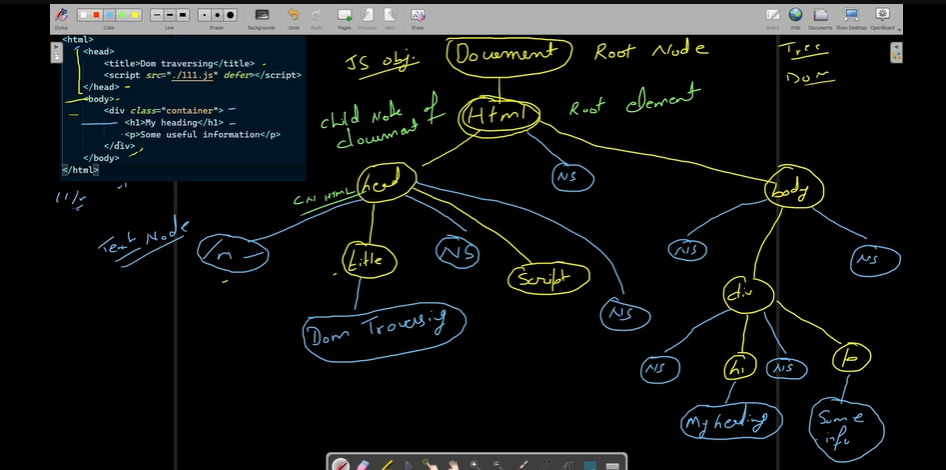 Stylus
Color
Eraser
Backgrounds
Undo
Redo
Pages
Previous
Next
Erase
Board
Web
Documents
Show Desktop
OpenBoard
<html>
<head>
<title>Dom traversing</title>
<script src="./111.js" defer></script>
</head>
<body>
<div class="container">
<h1>My heading</h1>
<p>Some useful information</p>
</div>
</body>
</html>
JS obj.
Document
Root Node
Tree
DOM
Child Node of document
Html
Root element
CN HTML
head
NS
body
Text Node
/n
title
NS
Script
NS
NS
NS
div
Dom Traversing
NS
h1
NS
p
My heading
Some info